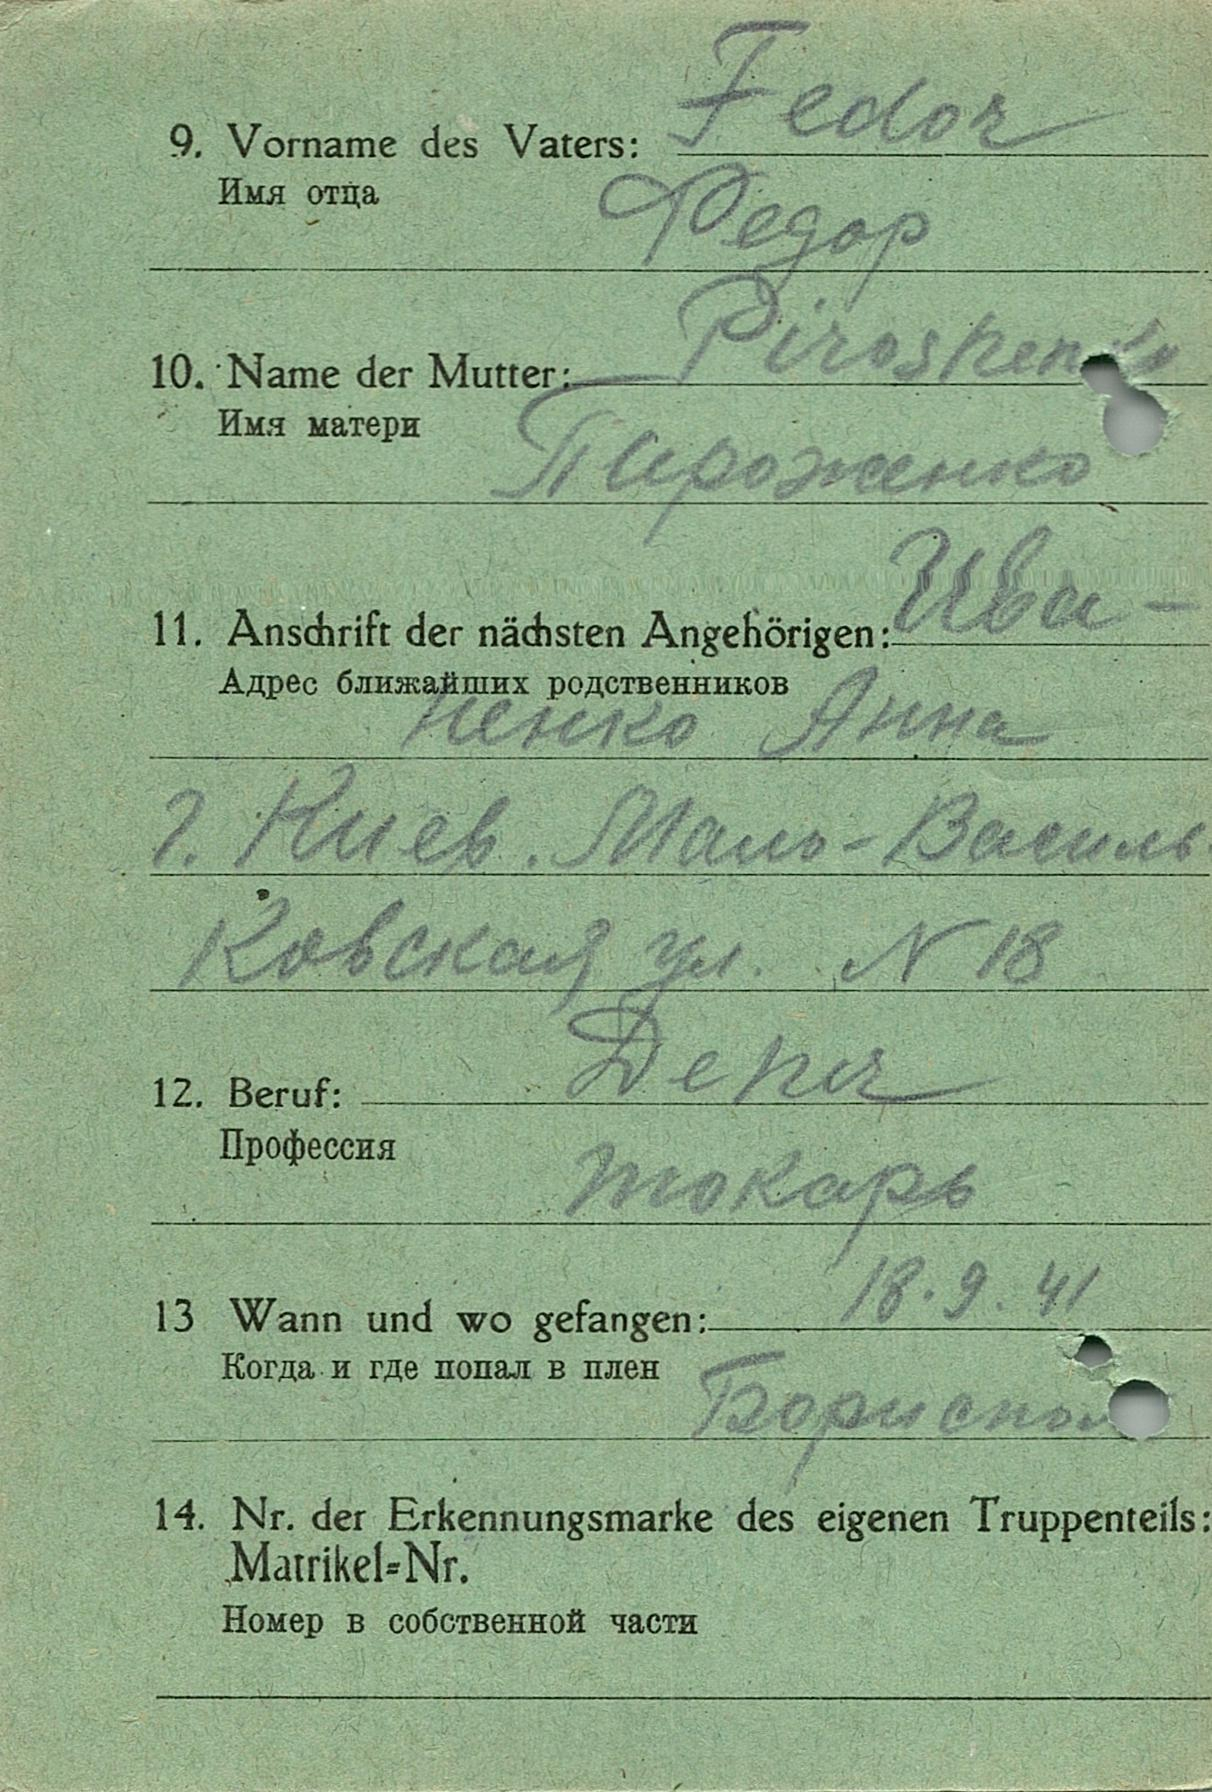 9. Vorname des Vaters: Fedor
Имя отца
Федор
10. Name der Mutter: Piroshenko
Имя матери
Пироженко
11. Anschrift der nächsten Angehörigen: Ива-
Адрес ближайших родственников
ненко Анна
г. Киев. Мало-Василь-
ковская ул. N 18
12. Beruf:
Профессия
токарь
13 Wann und wo gefangen: 18.9.41
Когда и где попал в плен
14. Nr. der Erkennungsmarke des eigenen Truppenteils:
Matrikel=Nr.
Номер в собственной части